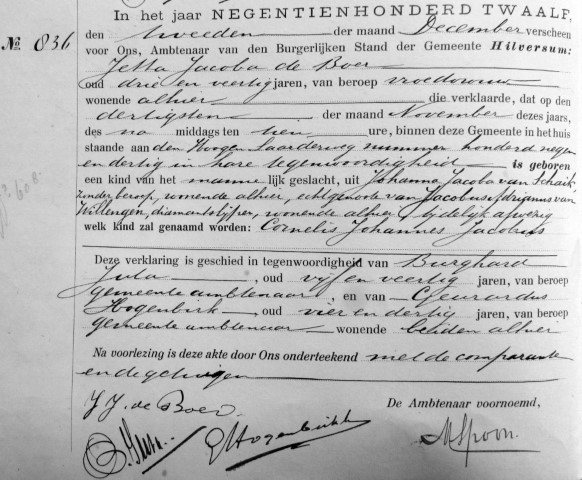 In het jaar NEGENTIENHONDERD TWAALF,
No. 836 den tweeden der maand December verscheen
voor Ons, Ambtenaar van den Burgerlijken Stand der Gemeente Hilversum:
Jetta Jacoba de Boer
oud drie en veertig jaren, van beroep vroedvrouw
wonende alhier die verklaarde, dat op den
dertigsten der maand November dezes jaars,
des na middags ten tien ure, binnen deze Gemeente in het huis
staande aan den Hoogen Laarderweg nummer honderd negen
en dertig in hare tegenwoordigheid is geboren
een kind van het mannelijk geslacht, uit Johanna Jacoba van Schaik
zonder beroep, wonende alhier, echtgenoote van Jacobus Adrianus van
Willengen, diamantslijper, wonende alhier, tijdelijk afwezig
welk kind zal genaamd worden: Cornelis Johannes Jacobus
Deze verklaring is geschied in tegenwoordigheid van Burghard
Jula, oud vijf en veertig jaren, van beroep
gemeente ambtenaar, en van Gerardus
Hogenbirk, oud vier en dertig jaren, van beroep
gemeente ambtenaar wonende beiden alhier
Na voorlezing is deze akte door Ons onderteekend met de comparante
en de getuigen
J. J. de Boer.
De Ambtenaar voornoemd,
G Hogenbirk